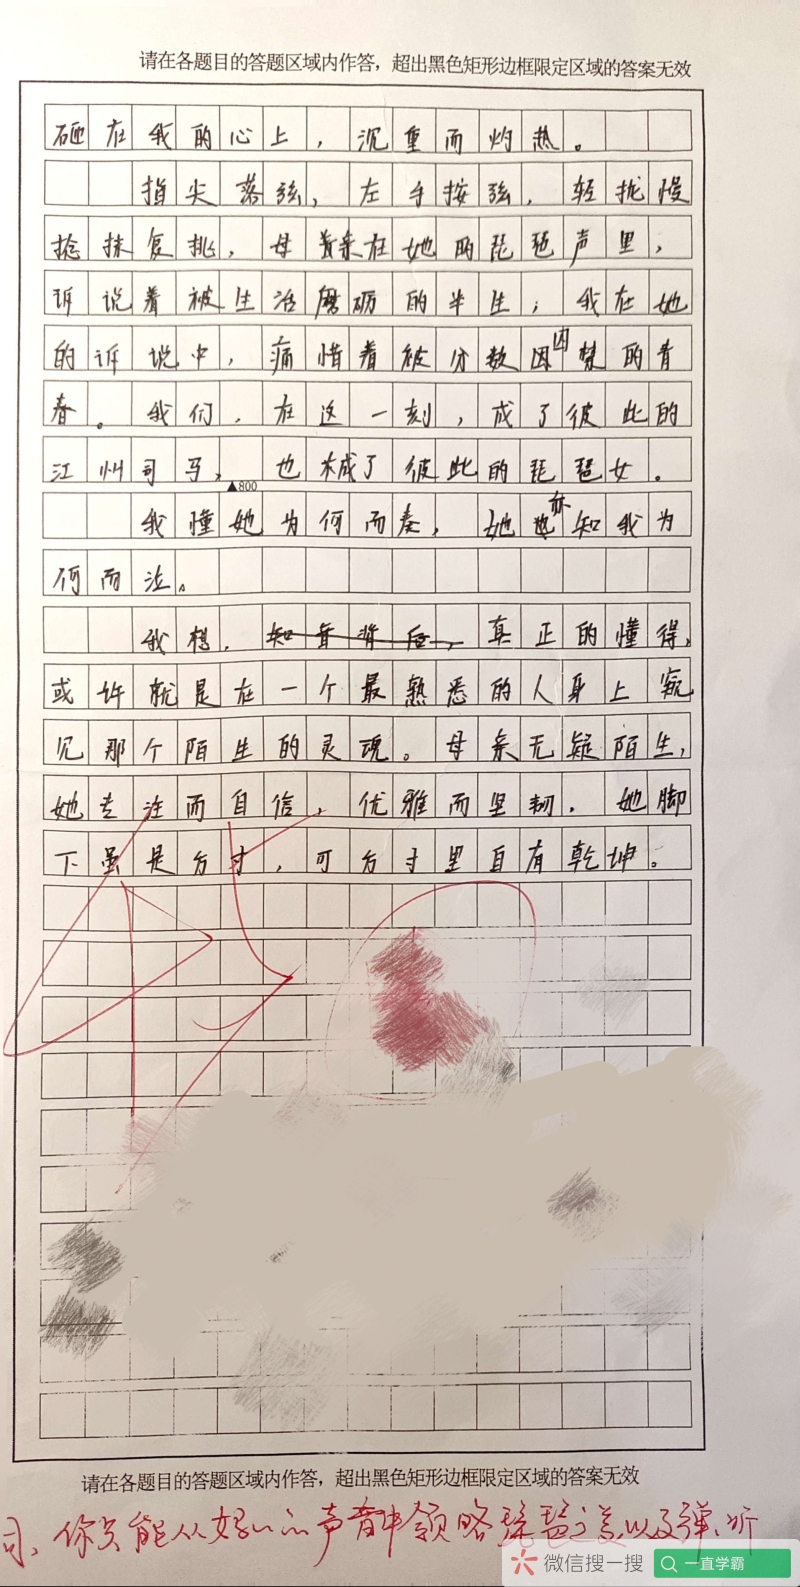 请在各题目的答题区域内作答，超出黑色矩形边框限定区域的答案无效
砸在我的心上，沉重而灼热。
指尖落弦，左手按弦，轻拢慢
捻抹复挑，母亲在她的琵琶声里，
诉说着被生活磨砺的半生；我在她
的诉说中，痛惜着被分数囚禁的青
春。我们，在这一刻，成了彼此的
江州司马，也成了彼此的琵琶女。
▲800
我懂她为何而奏，她亦知我为
何而泣。
我想，真正的懂得，
或许就是在一个最熟悉的人身上窥
见那个陌生的灵魂。母亲无疑陌生，
她专注而自信，优雅而坚韧。她脚
下虽是方寸，可方寸里自有乾坤。
请在各题目的答题区域内作答，超出黑色矩形边框限定区域的答案无效
你只能从好的声音中领略琵琶之美以及弹、听
微信搜一搜
一直学霸